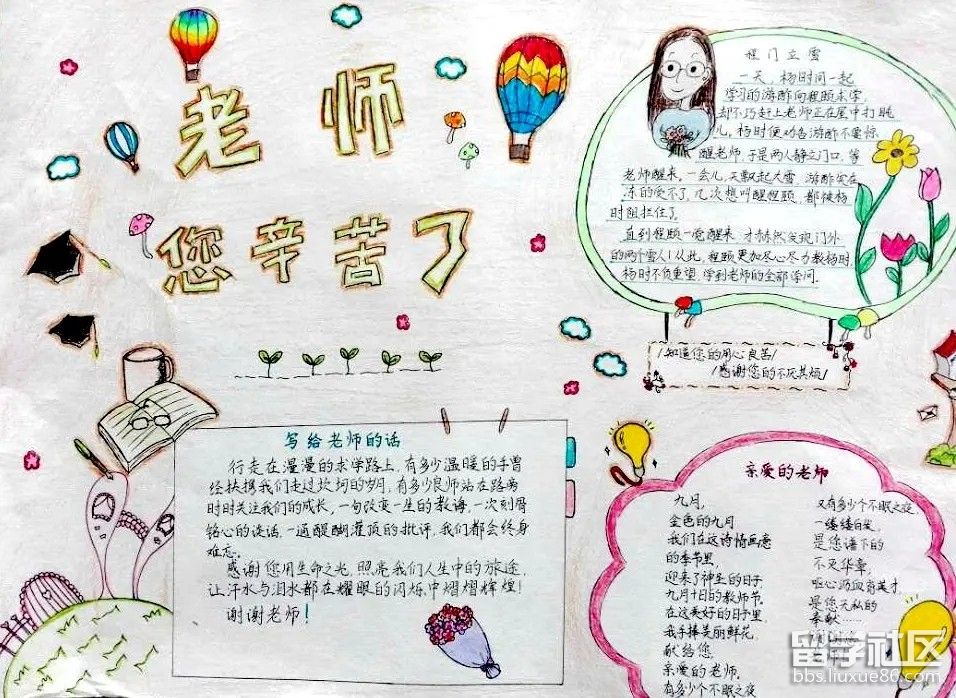 老师
您辛苦了
程门立雪
一天,杨时同一起
学习的游酢向程颐求学,
却不巧赶上老师正在屋中打盹
儿,杨时便劝告游酢不要惊
醒老师,于是两人静立门口,等
老师醒来。一会儿,天飘起大雪,游酢实在
冻的受不了,几次想叫醒程颐,都被杨
时阻拦住了
直到程颐一觉醒来,才赫然发现门外
的两个雪人!从此,程颐更加尽心尽力教杨时,
杨时不负重望,学到老师的全部学问.
/知道您的用心良苦/
/感谢您的不厌其烦/
写给老师的话
行走在漫漫的求学路上,有多少温暖的手曾
经扶携我们走过坎坷的岁月,有多少良师站在路两
时时关注我们的成长,一句改变一生的教诲,一次刻骨
铭心的谈话,一遍醍醐灌顶的批评,我们都会终身
难忘。
感谢您用生命之光,照亮我们人生中的旅途,
让汗水与泪水都在耀眼的闪烁中熠熠辉煌!
谢谢老师!
亲爱的老师
九月,
金色的九月
我们在这诗情画意
的季节里,
迎来了神圣的日子
九月十日的教师节,
在这美好的日子里
我手捧美丽鲜花,
献给您
亲爱的老师.
有多少个不眠之夜
又有多少个不眠之夜
一缕缕白发,
是您谱下的
不灭华章,
呕心沥血育英才,
是您无私的
奉献……
留学社区
bbs.liuxue86.com